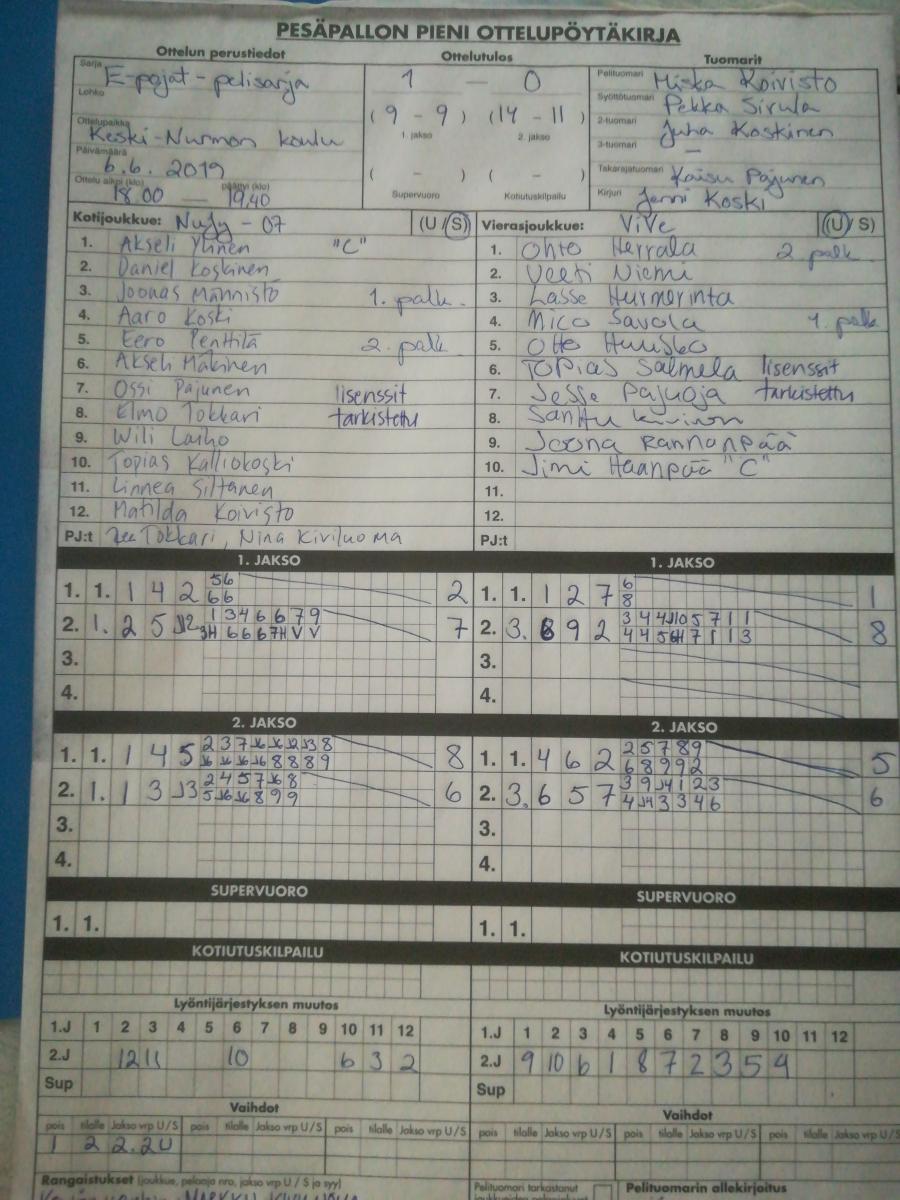 PESÄPALLON PIENI OTTELUPÖYTÄKIRJA
Ottelun perustiedot
Sarja E-pojat-pelisarja
Lohko
Ottelupaikka Keski-Nurmon koulu
Päivämäärä 6.6.2019
Ottelu alkoi (klo) 18.00 — päättyi (klo) 19.40
Ottelutulos
1 — 0
(9 - 9) (14 - 11)
1. jakso 2. jakso
( - ) ( - )
Supervuoro Kotiutuskilpailu
Tuomarit
Pelituomari Miska Koivisto
Syöttötuomari Pekka Sirula
2-tuomari Juha Koskinen
3-tuomari —
Takarajatuomari Kaisu Pajunen
Kirjuri Jenni Koski
Kotijoukkue: NuJy - 07 (U / S)
1. Akseli Ylinen "C"
2. Daniel Koskinen
3. Joonas Männistö 1. palk.
4. Aaro Koski
5. Eero Penttilä 2. palk.
6. Akseli Mäkinen
7. Ossi Pajunen lisenssit
8. Elmo Tokkari tarkistettu
9. Wili Laiho
10. Topias Kalliokoski
11. Linnea Siltanen
12. Matilda Koivisto
PJ:t Tokkari, Nina Kiviluoma
Vierasjoukkue: ViVe (U / S)
1. Ohto Herrala 2. palk.
2. Veeti Niemi
3. Lasse Hurmerinta
4. Nico Savola 1. palk
5. Otto Huusko
6. Topias Salmela lisenssit
7. Jesse Pajuoja tarkistettu
8. Santtu Kivinen
9. Joona Rannanpää
10. Jimi Haanpää "C"
11.
12.
PJ:t
1. JAKSO
1. 1. 1 4 2 56 2
66
2. 1. 2 5 J2 1 3 4 6 6 7 9 7
3H 6 6 6 7H V V
3.
4.
1. JAKSO
1. 1. 1 2 7 6 1
8
2. 3. 8 9 2 3 4 4 J10 5 7 1 1 8
4 4 5 6H 7 1 1 3
3.
4.
2. JAKSO
1. 1. 1 4 5 2 3 7 J6 J6 J2 J3 8 8
J6 J6 J6 J6 8 8 8 9
2. 1. 1 3 J3 2 4 5 7 J6 8 6
5 J6 J6 8 9 9
3.
4.
2. JAKSO
1. 1. 4 6 2 2 5 7 8 9 5
6 8 9 9 2
2. 3. 6 5 7 3 9 J4 1 2 3 6
4 J4 3 3 4 6
3.
4.
SUPERVUORO
1. 1.
SUPERVUORO
1. 1.
KOTIUTUSKILPAILU
KOTIUTUSKILPAILU
Lyöntijärjestyksen muutos
1.J 1 2 3 4 5 6 7 8 9 10 11 12
2.J 12 11 10 6 3 2
Sup
Lyöntijärjestyksen muutos
1.J 1 2 3 4 5 6 7 8 9 10 11 12
2.J 9 10 6 1 8 7 2 3 5 4
Sup
Vaihdot
pois tilalle Jakso vrp U/S pois tilalle Jakso vrp U/S pois tilalle Jakso vrp U/S
1 2 2.2U
Vaihdot
pois tilalle Jakso vrp U/S pois tilalle Jakso vrp U/S pois tilalle Jakso vrp U/S
Rangaistukset (joukkue, pelaaja nro, jakso vrp U / S ja syy)
Pelituomari tarkastanut
Pelituomarin allekirjoitus